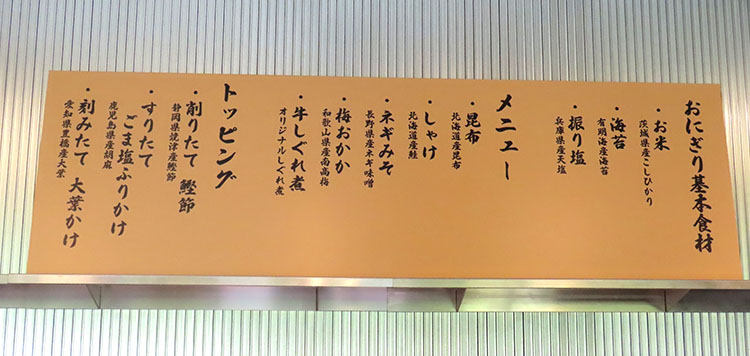 おにぎり基本食材
・お米
茨城県産こしひかり
・海苔
有明海産海苔
・振り塩
兵庫県産天塩
メニュー
・昆布
北海道産昆布
・しゃけ
北海道産鮭
・ネギみそ
長野県産ネギ味噌
・梅おかか
和歌山県産南高梅
・牛しぐれ煮
オリジナルしぐれ煮
トッピング
・削りたて 鰹節
静岡県焼津産鰹節
・すりたて
ごま塩ふりかけ
鹿児島県産胡麻
・刻みたて 大葉かけ
愛知県豊橋産大葉